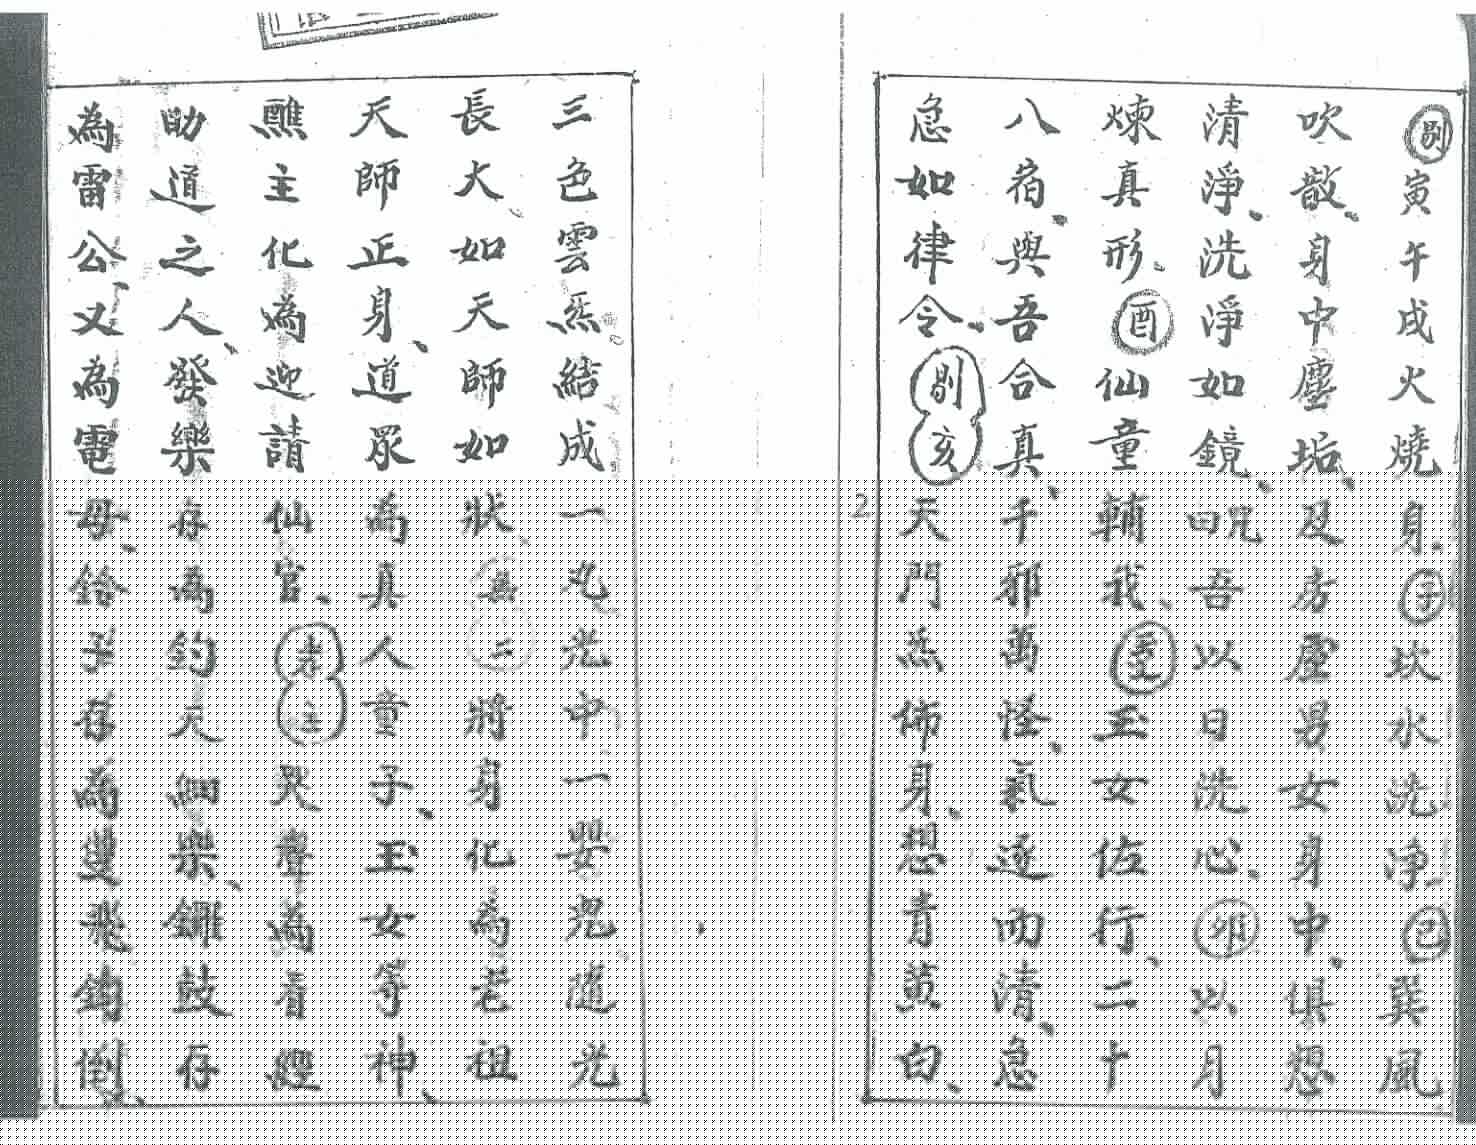 剔寅午戌火燒身子坎水洗净巳巽風
吹散身中塵垢及房塵男女身中俱想
清淨洗淨如鏡咒吾以日洗心卯以月
煉真形酉仙童輔我玉女佐行二十
八宿與吾合真千邪萬怪氣逐而清急
急如律令剔亥天門炁佈身想青黃白
三色雲炁結成一丸光中一嬰兒道光
長大如天師如狀將身化為老祖
天師正身道眾為真人童子玉女等神
醮主化為迎請仙官孝主哭聲為看經
助道之人發樂存為鈞天細樂鑼鼓存
為雷公又為電母鈴子存為雙飛鈎倒
2